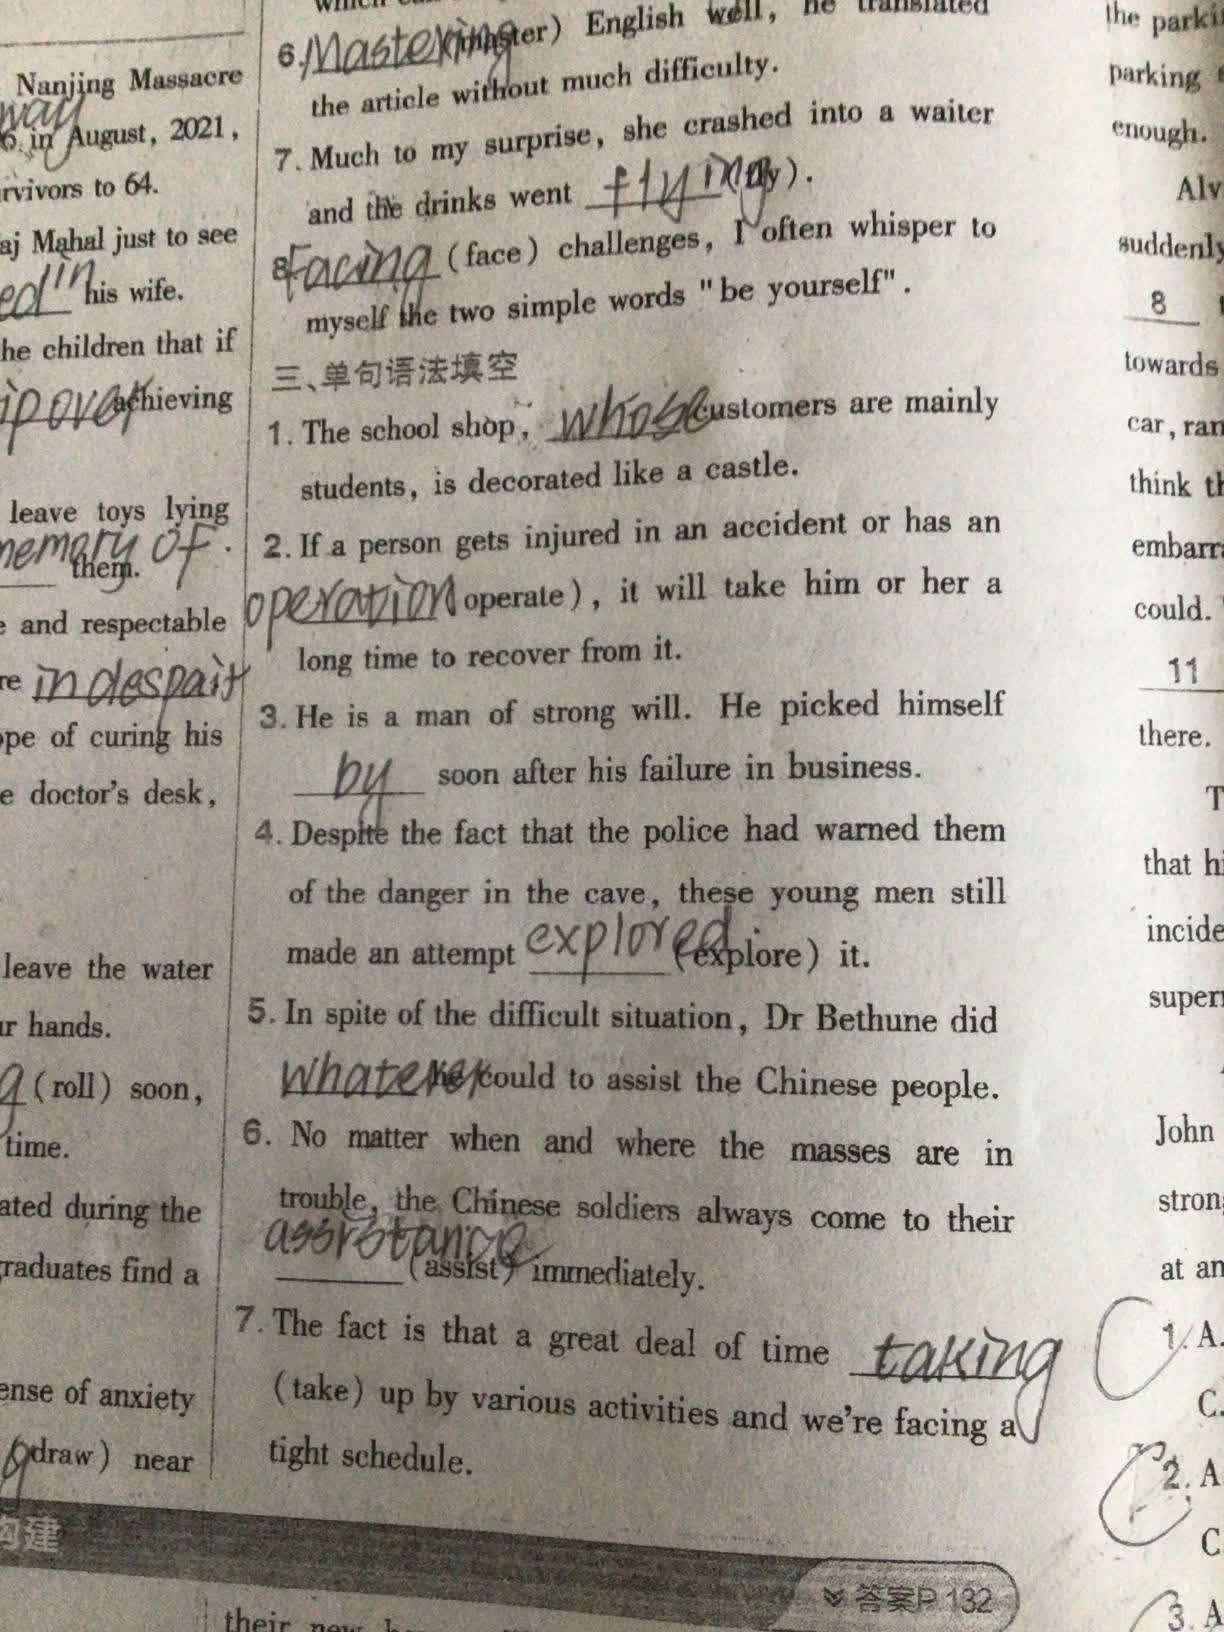 Nanjing Massacre
way
6. in August, 2021,
rvivors to 64.
aj Mahal just to see
ed in his wife.
he children that if
ip over achieving
leave toys lying
memory of
them.
e and respectable
re in despair
ope of curing his
e doctor's desk,
leave the water
ur hands.
g (roll) soon,
time.
ated during the
graduates find a
ense of anxiety
g (draw) near
构建
6. Mastering (master) English well, he translated
the article without much difficulty.
7. Much to my surprise, she crashed into a waiter
and the drinks went flying (fly).
8. Facing (face) challenges, I often whisper to
myself the two simple words "be yourself".
三、单句语法填空
1. The school shop, whose customers are mainly
students, is decorated like a castle.
2. If a person gets injured in an accident or has an
operation (operate), it will take him or her a
long time to recover from it.
3. He is a man of strong will. He picked himself
by soon after his failure in business.
4. Despite the fact that the police had warned them
of the danger in the cave, these young men still
made an attempt explored (explore) it.
5. In spite of the difficult situation, Dr Bethune did
whatever he could to assist the Chinese people.
6. No matter when and where the masses are in
trouble, the Chinese soldiers always come to their
assistance (assist) immediately.
7. The fact is that a great deal of time taking
(take) up by various activities and we're facing a
tight schedule.
答案P 132
their new
the parki
parking
enough.
Alv
suddenly
8
towards
car, ran
think th
embarra
could.
11
there.
T
that hi
incide
super
John
strong
at an
1. A.
C.
2. A
C
3. A